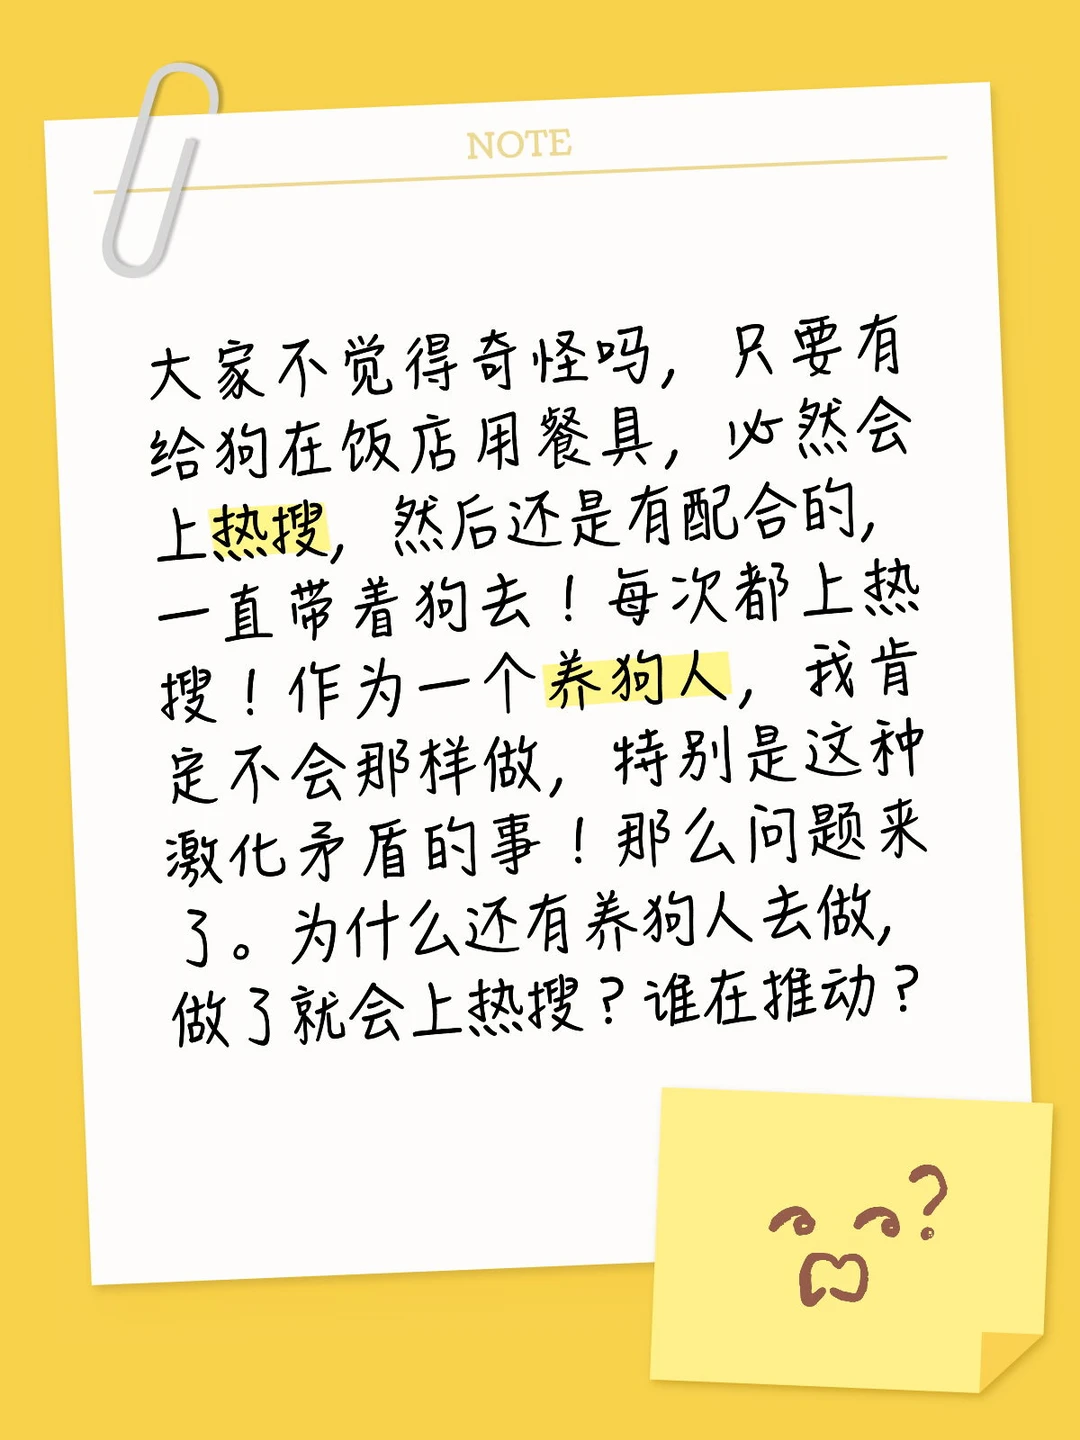 NOTE
大家不觉得奇怪吗，只要有
给狗在饭店用餐具，必然会
上热搜，然后还是有配合的，
一直带着狗去！每次都上热
搜！作为一个养狗人，我肯
定不会那样做，特别是这种
激化矛盾的事！那么问题来
了。为什么还有养狗人去做，
做了就会上热搜？谁在推动？
?